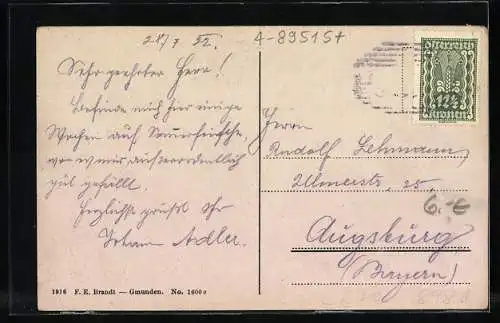 28/7 22.
4-89515+
Sehr geehrter Herr!
Befinde mich hier einige
Wochen auf Sommerfrische,
wo es mir außerordentlich
gut gefällt.
Herzlichst grüßt Ihr
Johann Adler
Österreich
12½
Kronen
Herrn
Rudolf Lehmann
Ulmerstr. 25
Augsburg
(Bayern)
1916 F. E. Brandt — Gmunden. No. 1600 a